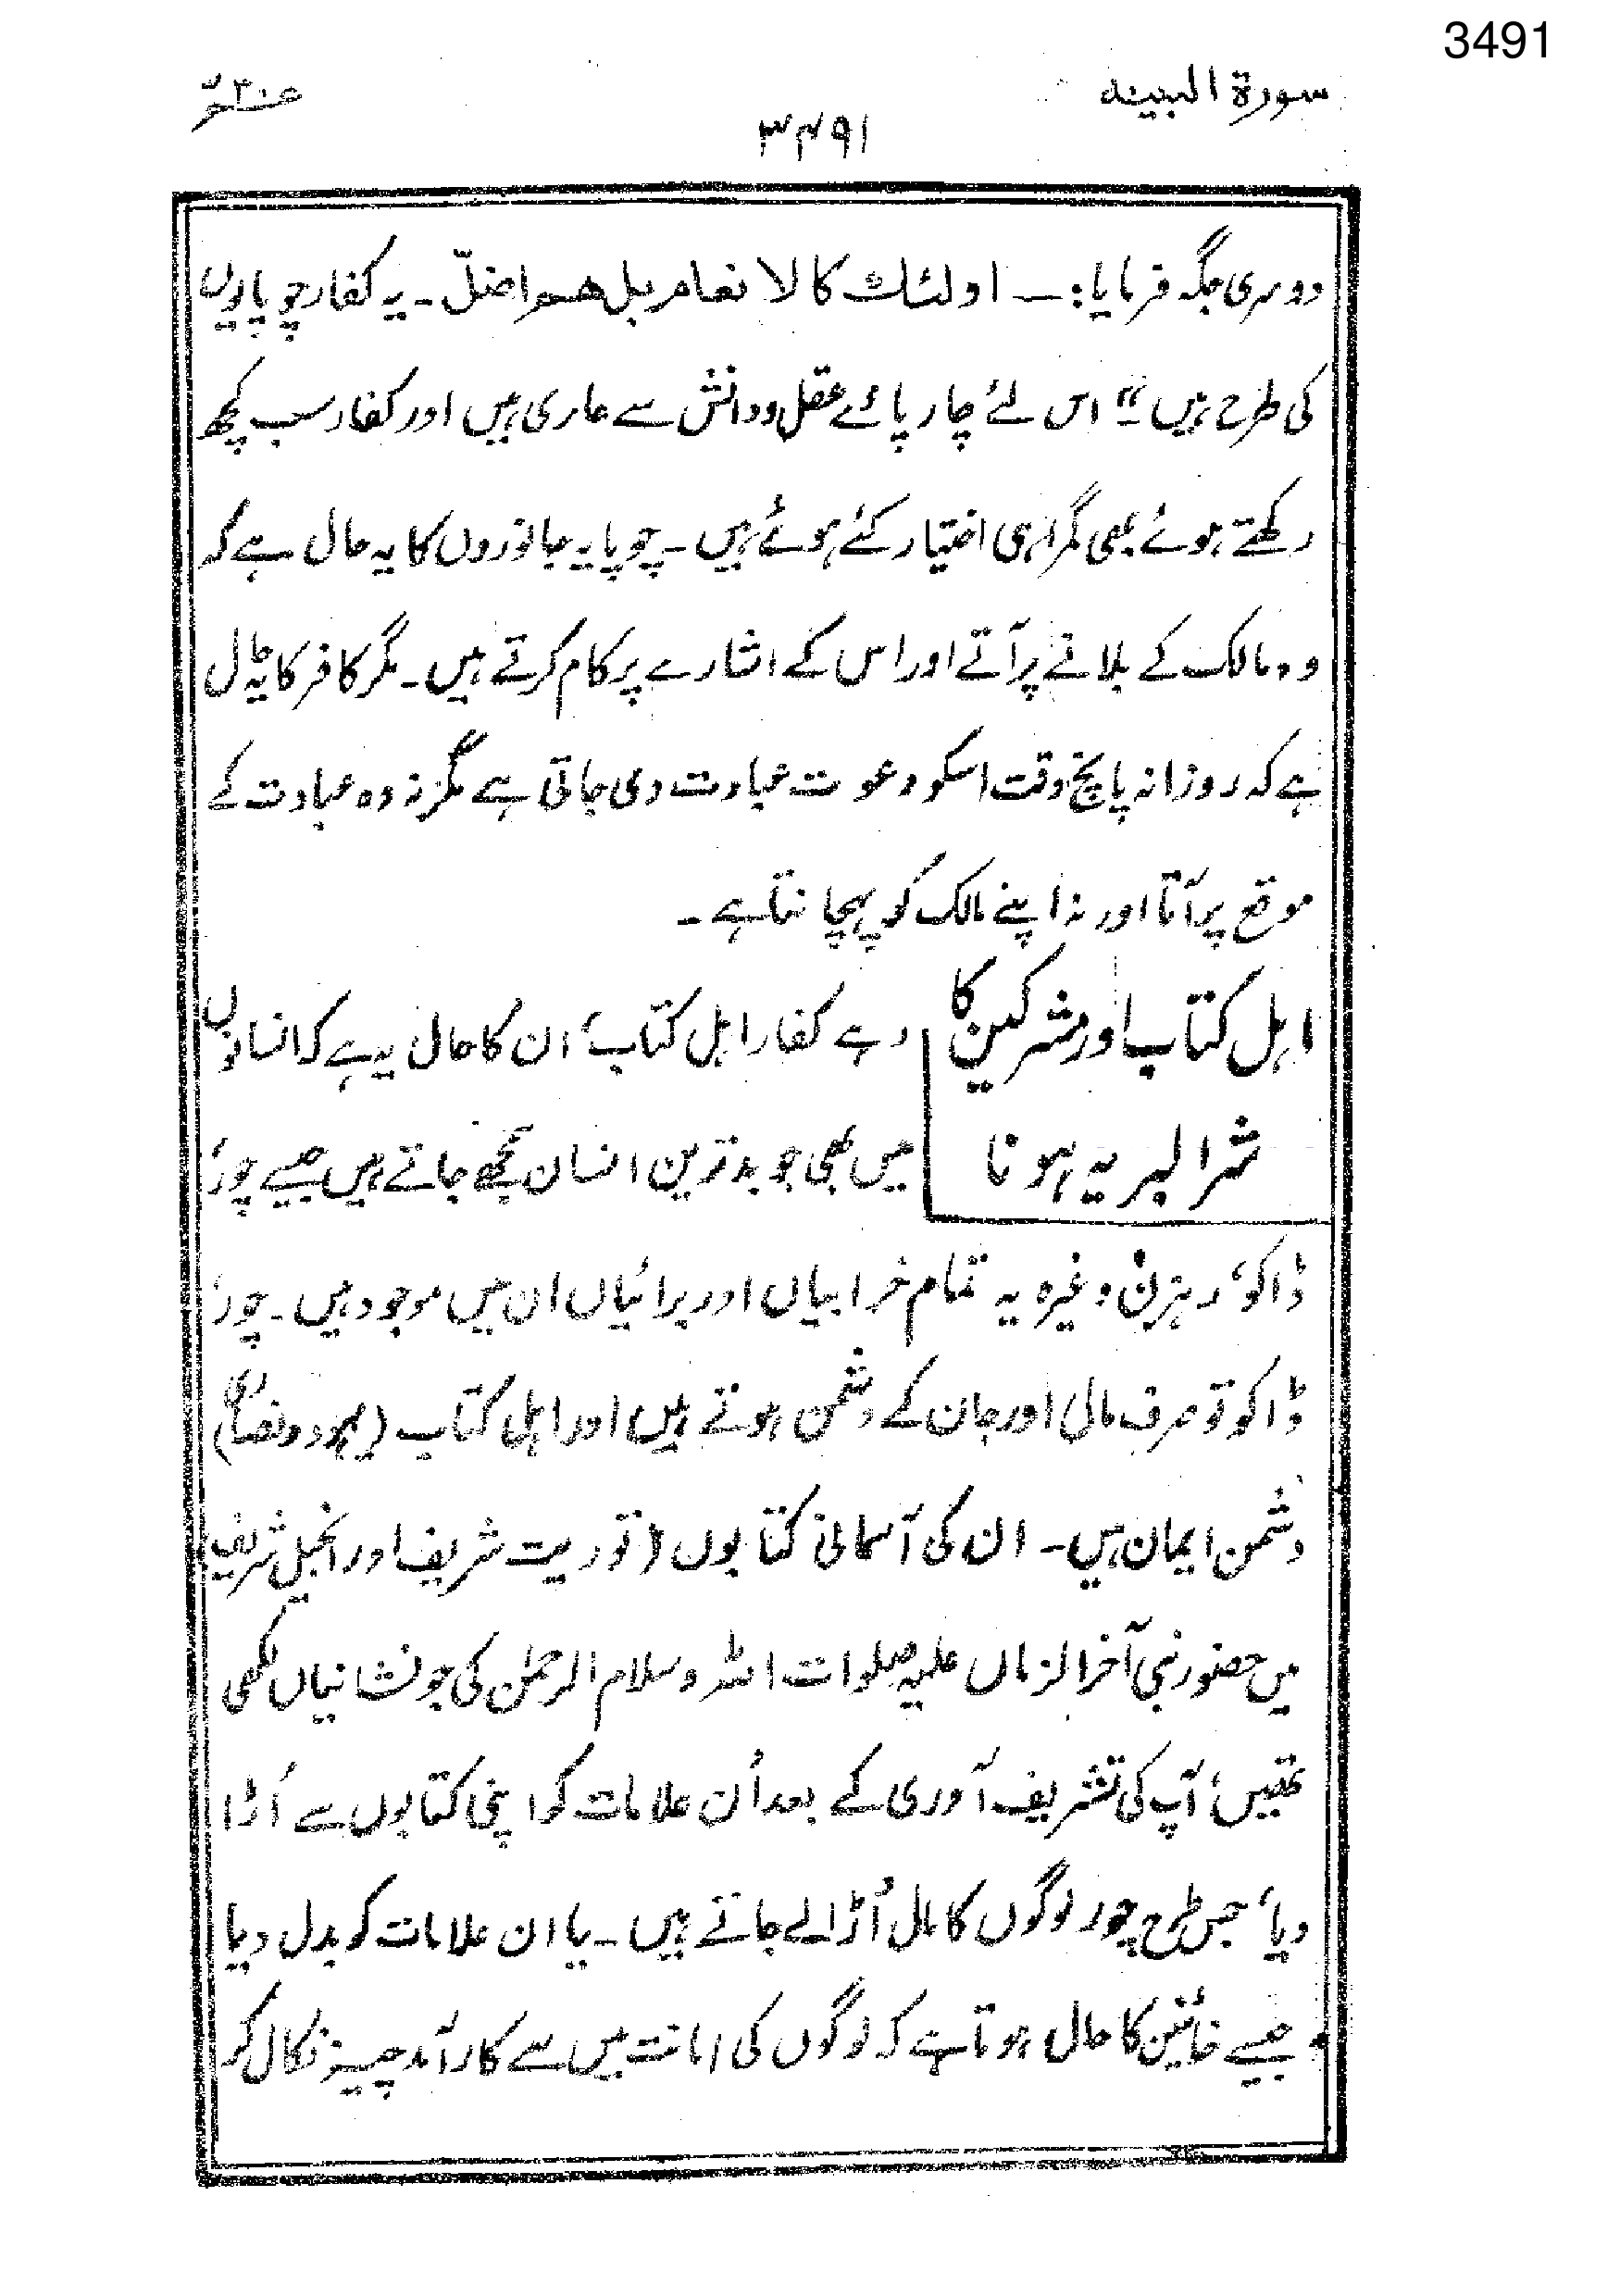 3491
سورۃ البینہ
عم ۳۰
۳۴۹۱
دوسری جگہ فرمایا:۔ اولئك كالانعام بل هم اضلّ۔ یہ کفار چوپایوں
کی طرح ہیں“ اس لئے چار پائے عقل و دانش سے عاری ہیں اور کفار سب کچھ
رکھتے ہوئے بھی گمراہی اختیار کئے ہوئے ہیں۔ چوپایہ جانوروں کا یہ حال ہے کہ
وہ مالک کے بلانے پر آتے اور اس کے اشارے پر کام کرتے ہیں۔ مگر کافر کا یہ حال
ہے کہ روزانہ پانچ وقت اسکو دعوت عبادت دی جاتی ہے مگر نہ وہ عبادت کے
موقع پر آتا اور نہ اپنے مالک کو پہچانتا ہے۔
اہل کتاب اور مشرکین کا
شر البریہ ہونا
رہے کفار اہل کتاب، ان کا حال یہ ہے کہ انسانوں
میں بھی جو بدترین انسان سمجھے جاتے ہیں جیسے چور،
ڈاکو، رہزن وغیرہ یہ تمام خرابیاں اور برائیاں ان میں موجود ہیں۔ چور،
ڈاکو تو صرف مال اور جان کے دشمن ہوتے ہیں اور اہل کتاب (یہود و نصاریٰ)
دشمن ایمان ہیں۔ ان کی آسمانی کتابوں (توریت شریف اور انجیل شریف)
میں حضور نبی آخر الزماں علیہ صلوات اللہ و سلام الرحمٰن کی جو نشانیاں لکھی
تھیں، آپ کی تشریف آوری کے بعد اُن علامات کو اپنی کتابوں سے اُڑا
دیا، جس طرح چور لوگوں کا مال اُڑا لے جاتے ہیں۔ یا ان علامات کو بدل دیا
جیسے خائنین کا حال ہوتا ہے کہ لوگوں کی امانت میں سے کارآمد چیز نکال کر